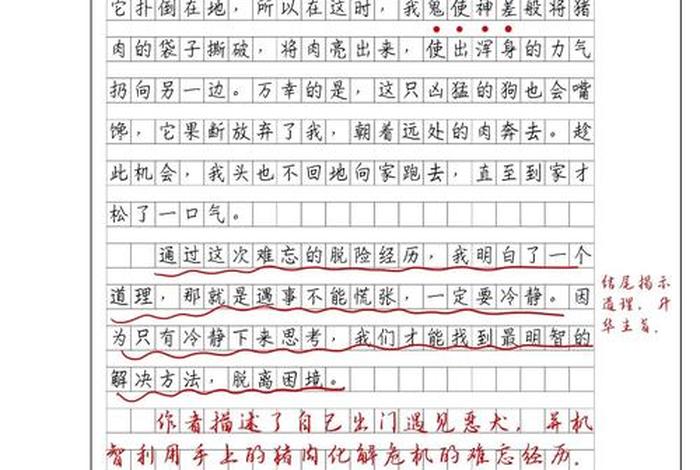 它扑倒在地，所以在这时，我鬼使神差般将猪
肉的袋子撕破，将肉亮出来，使出浑身的力气
扔向另一边。万幸的是，这只凶猛的狗也会嘴
馋，它果断放弃了我，朝着远处的肉奔去。趁
此机会，我头也不回地向家跑去，直至到家才
松了一口气。
通过这次难忘的脱险经历，我明白了一个
道理，那就是遇事不能慌张，一定要冷静。因
为只有冷静下来思考，我们才能找到最明智的
解决方法，脱离困境。
结尾揭示
道理，升
华主旨。
作者描述了自己出门遇见恶犬，并机
智利用手上的猪肉化解危机的难忘经历.